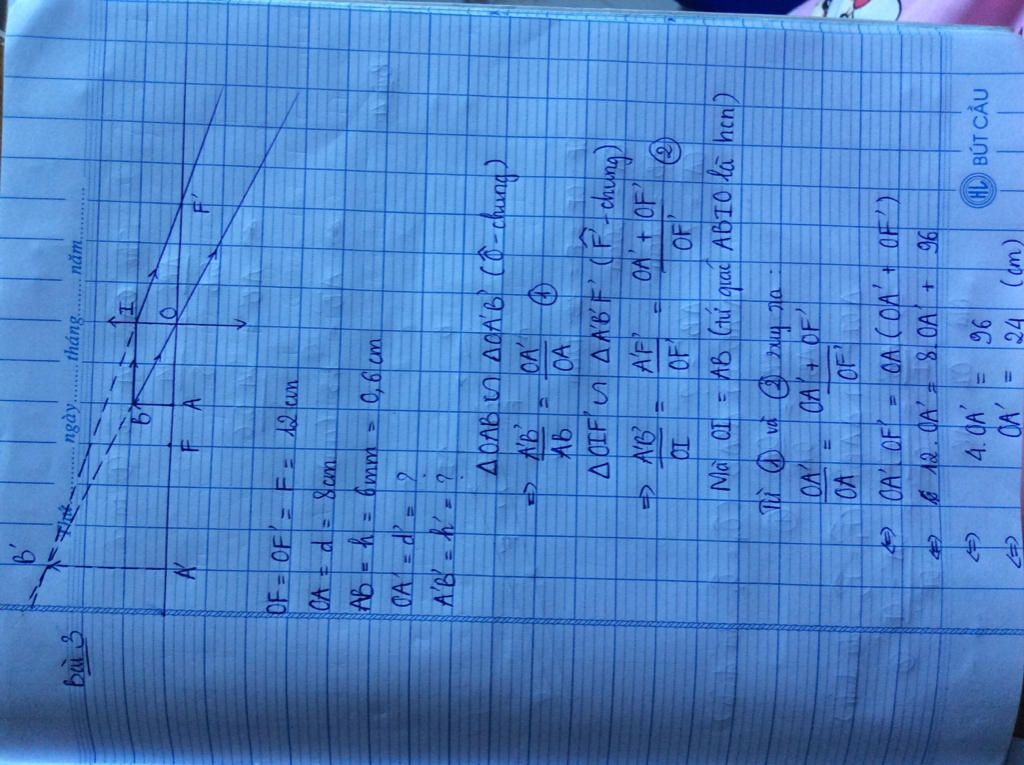 Thứ ......... ngày ......... tháng ......... năm .........
Bài 3
B'
I
B
A'
F
A
O
F'
OF = OF' = F = 12 cm
OA = d = 8cm
AB = h = 6mm = 0,6cm
OA' = d' = ?
A'B' = h' = ?
ΔOAB ∽ ΔOA'B' (Ô - chung)
=> A'B'/AB = OA'/OA ①
ΔOIF' ∽ ΔA'B'F' (F̂' - chung)
=> A'B'/OI = A'F'/OF' = OA' + OF'/OF' ②
Mà OI = AB (tứ giác ABIO là hcn)
Từ ① và ② suy ra:
OA'/OA = OA' + OF'/OF'
<=> OA'. OF' = OA (OA' + OF')
<=> 12. OA' = 8. OA' + 96
<=> 4. OA' = 96
<=> OA' = 24 (cm)
HL BÚT CẦU